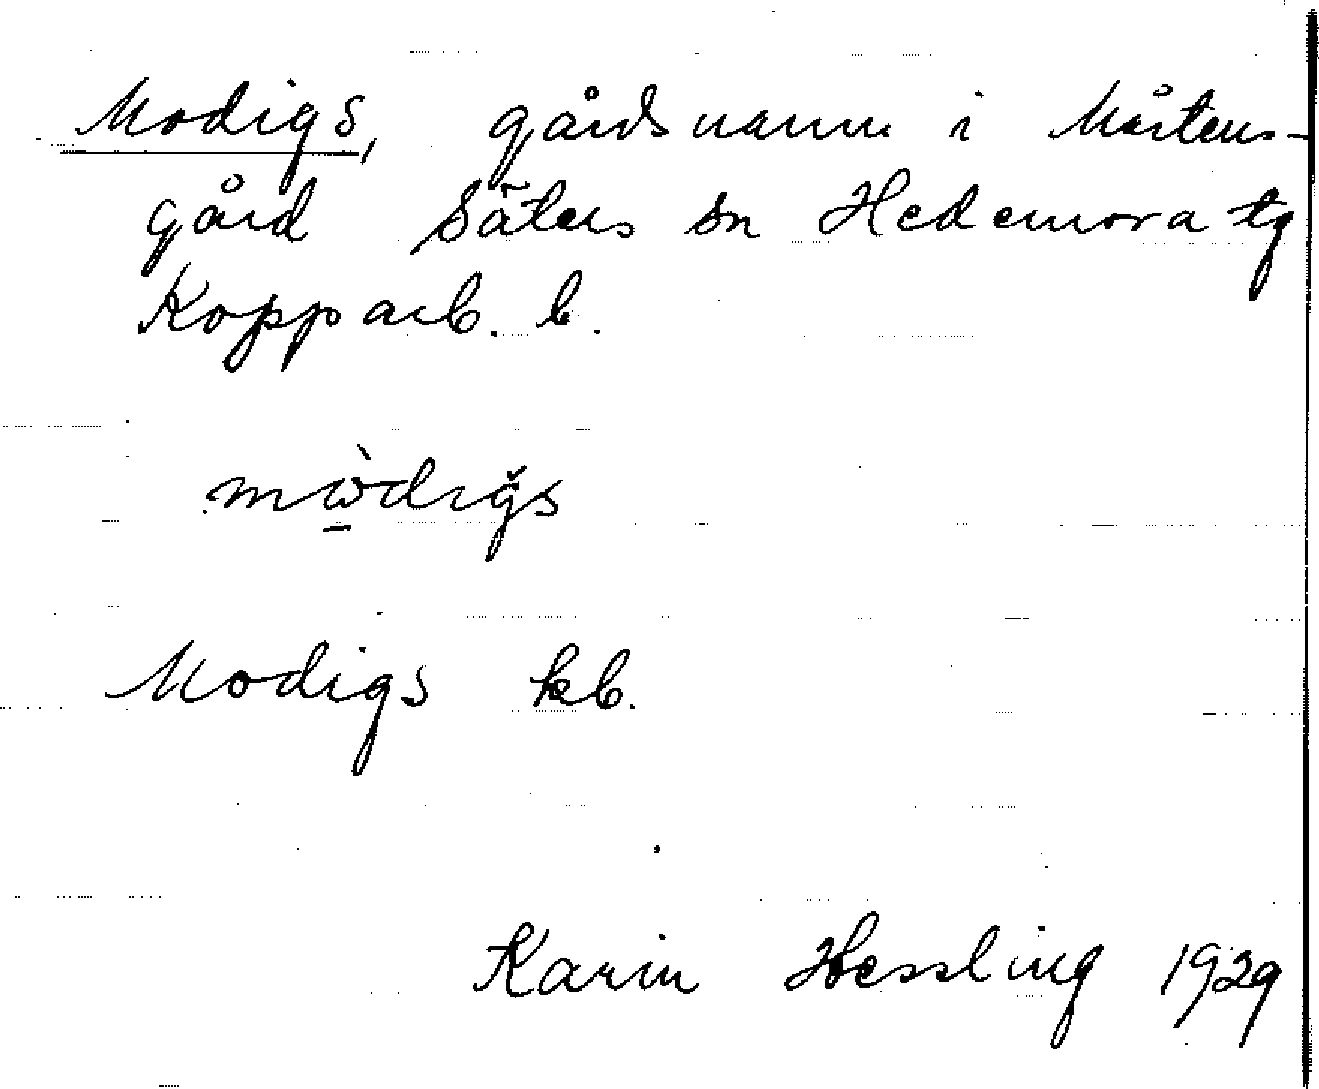 Modigs, gårdsnamn i Mårtens-
gård Säters sn Hedemora tg
Kopparb. l.
mὼ̱dıǧs
Modigs kb.
Karin Hessling 1929